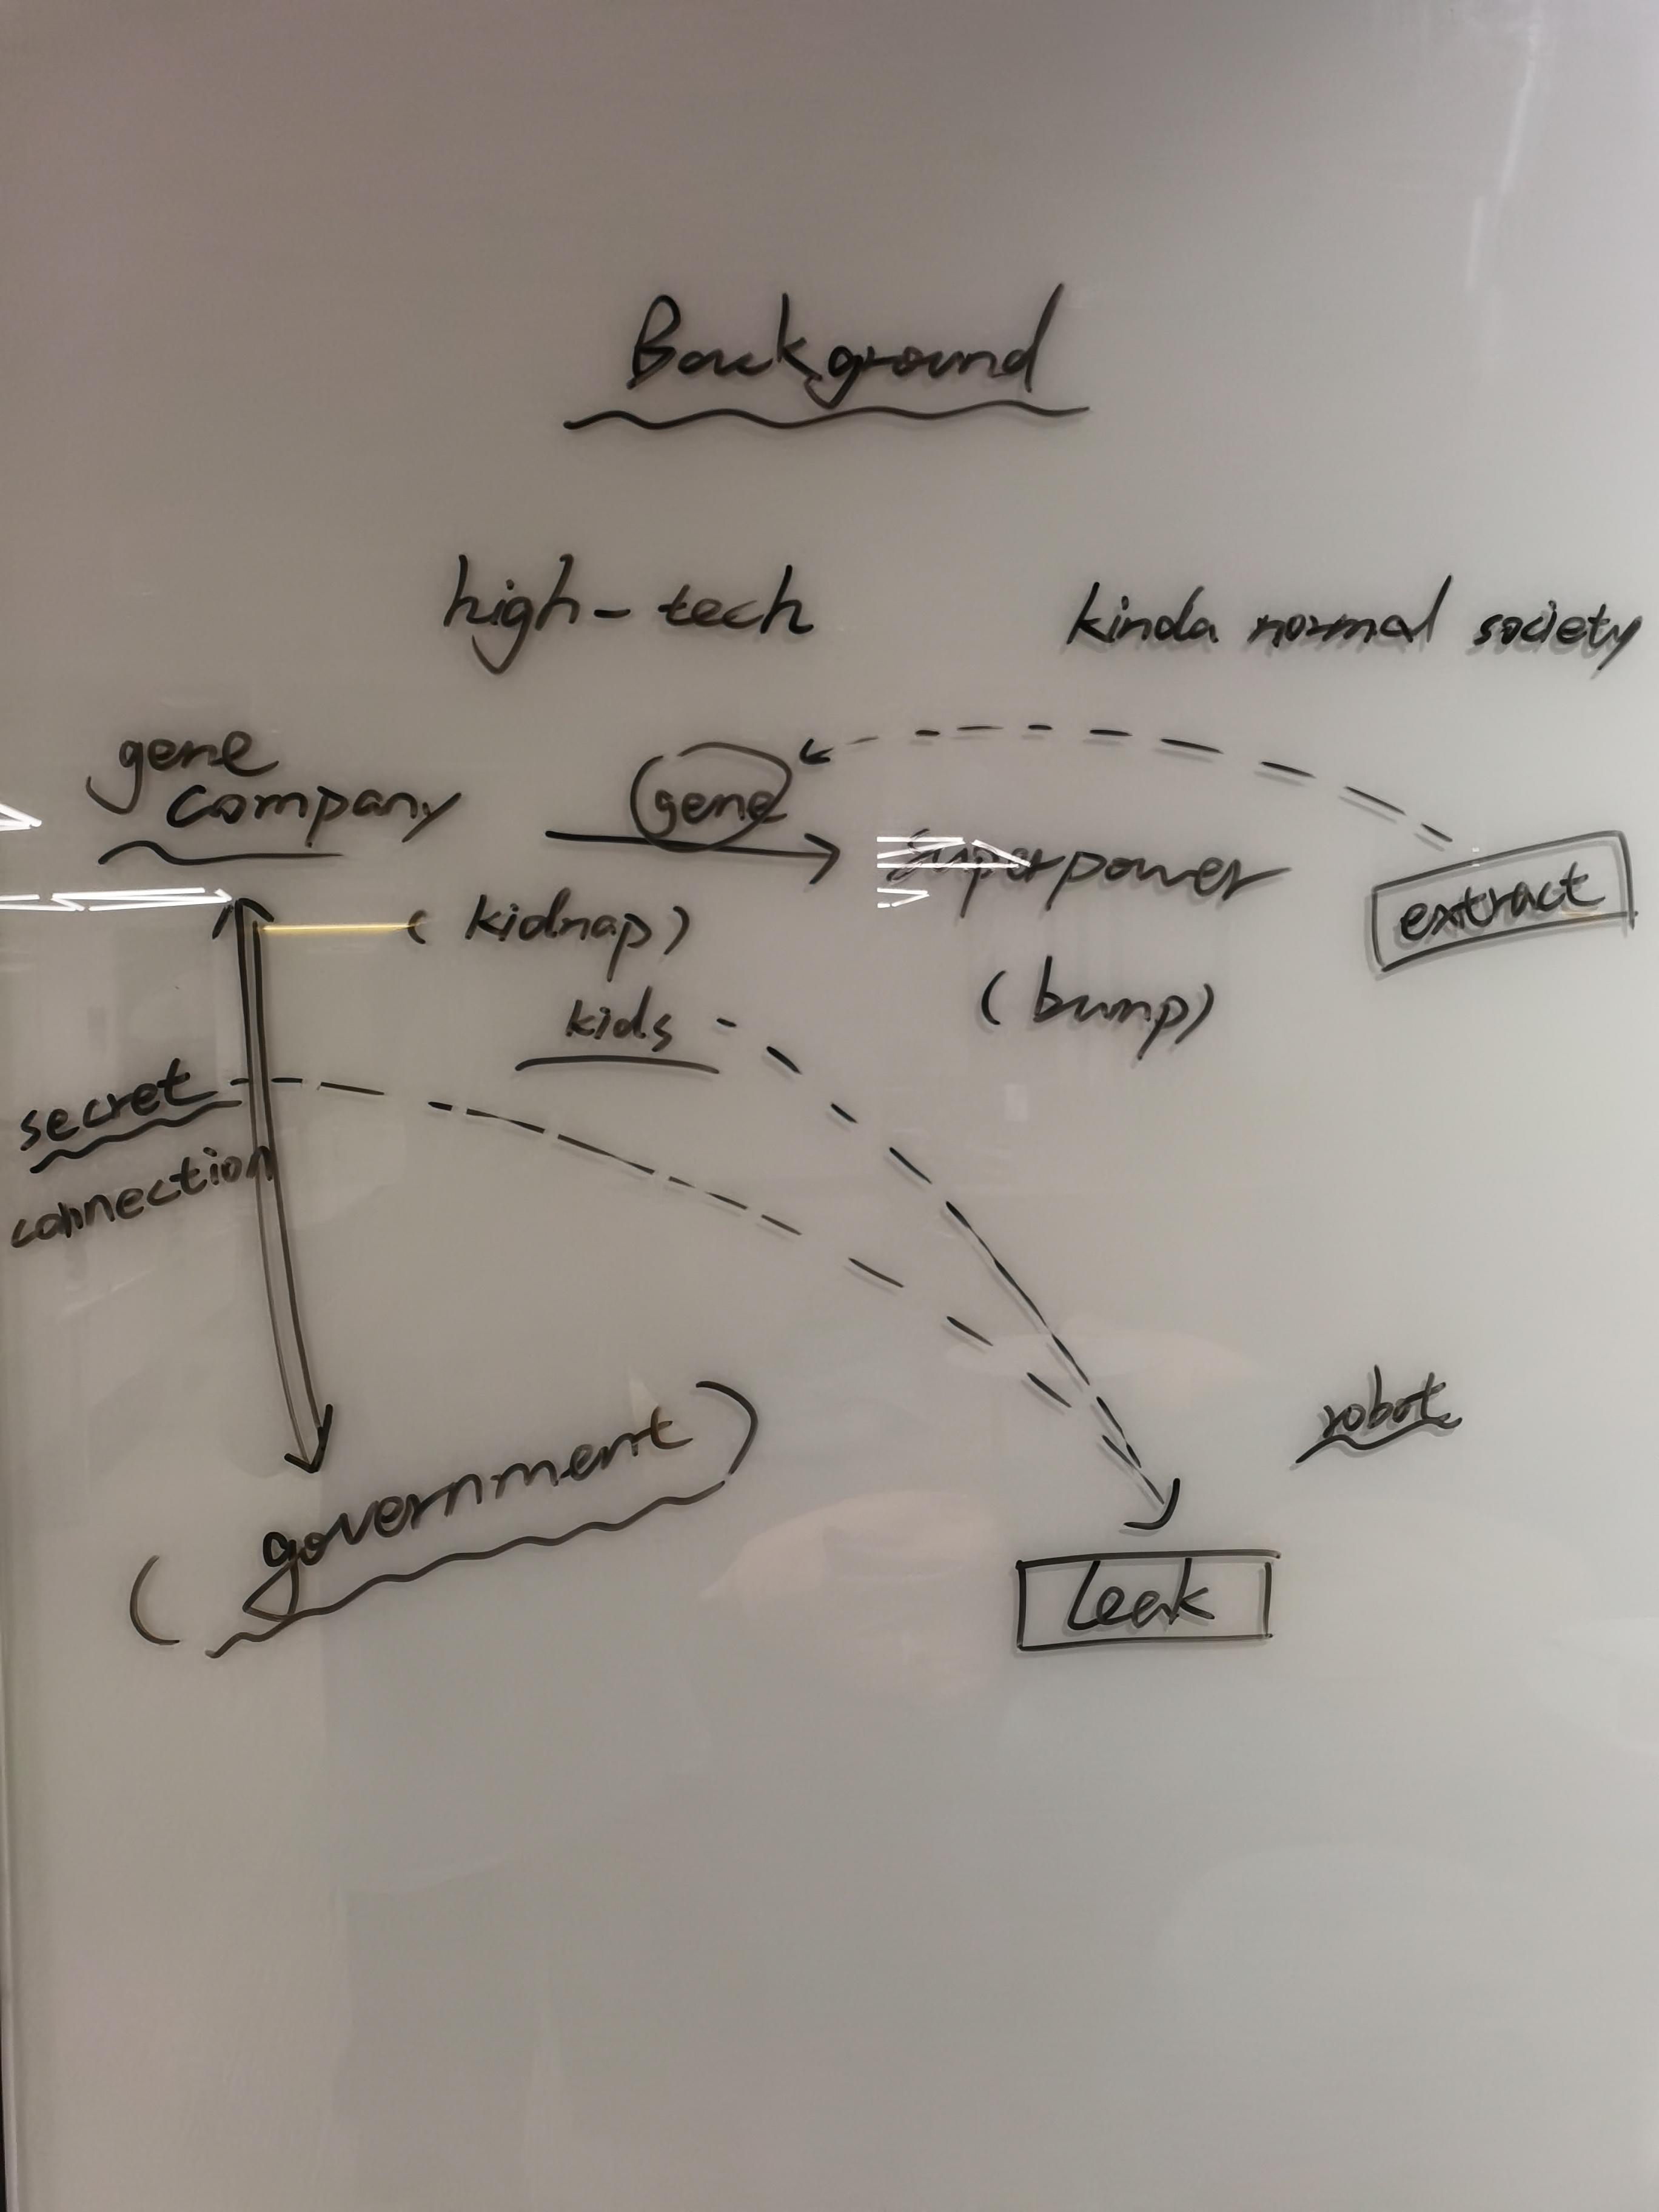 Background
high-tech
kinda normal society
gene
company
gene
superpower
extract
(kidnap)
kids
(bump)
secret
connection
robot
(government)
leak